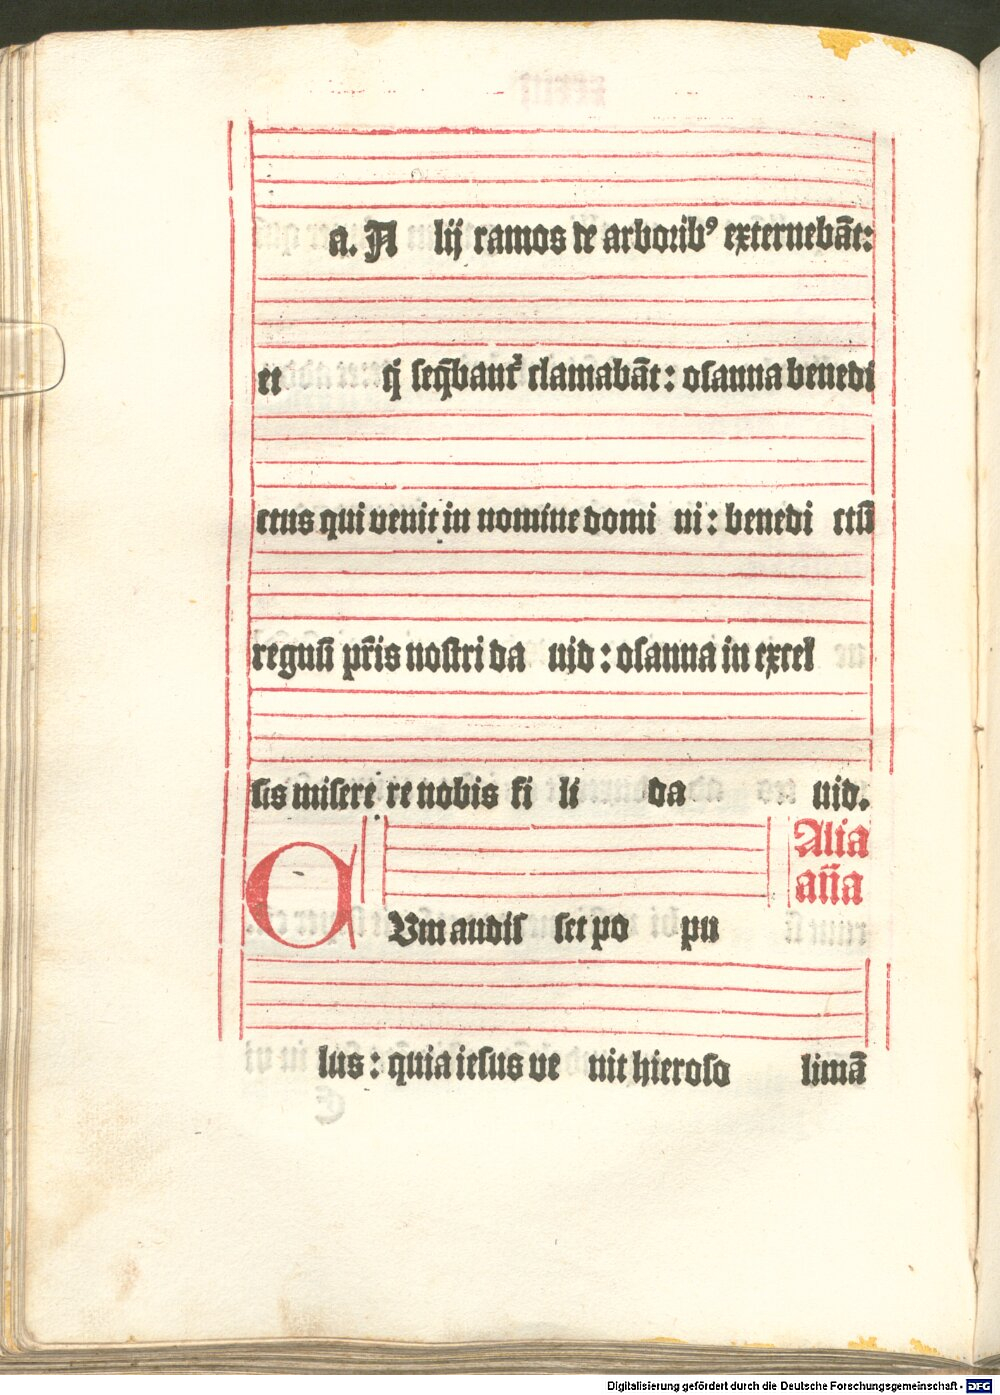 a. A lij ramos de arborib⁹ externebāt:
et q̄ seq̄bant᷑ clamabāt : osanna benedi
ctus qui venit in nomine domi ni : benedi ctū
regnū pr̄is nostri da uid : osanna in excel
sis misere re nobis fi li da uid.
Alia
an̄a
CVm audis set po pu
lus : quia iesus ve nit hieroso limā
Digitalisierung gefördert durch die Deutsche Forschungsgemeinschaft - DFG